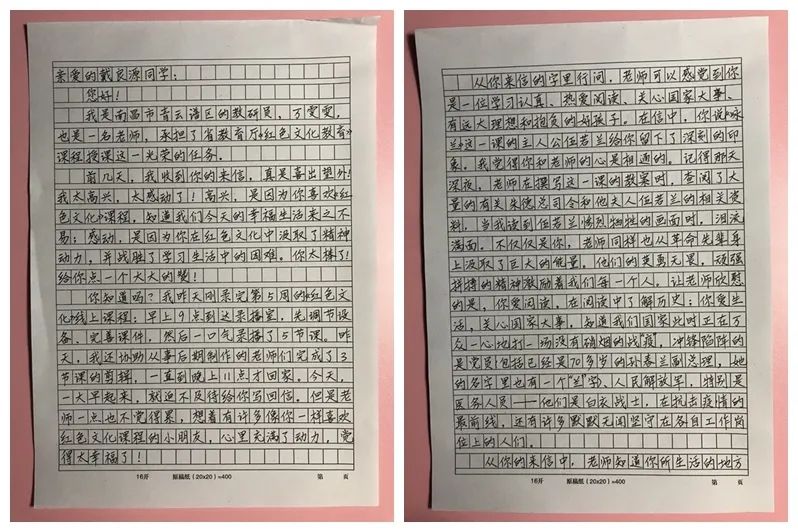 亲爱的戴良源同学：
您好！
我是南昌市青云谱区的教研员，万雯雯，
也是一名老师，承担了省教育厅《红色文化教育》
课程授课这一光荣的任务。
前几天，我收到你的来信，真是喜出望外！
我太高兴，太感动了！高兴，是因为你喜欢《红
色文化》课程，知道我们今天的幸福生活来之不
易；感动，是因为你在红色文化中汲取了精神
动力，并战胜了学习生活中的困难。你太棒了！
给你点一个大大的赞！
你知道吗？我昨天刚录完第5周的《红色文
化》线上课程：早上9点到达录播室，先调节设
备、完善课件，然后一口气录播了5节课。昨
天，我还协助从事后期制作的老师们完成了3
节课的剪辑，一直到晚上11点才回家。今天，
一大早起来，就迫不及待给你写回信。但是老
师一点也不觉得累，想着有许多像你一样喜欢
红色文化课程的小朋友，心里充满了动力，觉
得太幸福了！
16开 原稿纸(20x20)=400 第 页
从你来信的字里行间，老师可以感觉到你
是一位学习认真、热爱阅读、关心国家大事、
有远大理想和抱负的好孩子。在信中，你说《咏
兰》这一课的主人公伍若兰给你留下了深刻的印
象。我觉得你和老师的心是相通的。记得那天
深夜，老师在撰写这一课的教案时，查阅了大
量的有关朱德总司令和他夫人伍若兰的相关资
料，当我读到伍若兰慷慨牺牲的画面时，泪流
满面。不仅仅是你，老师同样也从革命先辈身
上汲取了巨大的能量。他们的英勇无畏，顽强
拼搏的精神激励着我们每一个人。让老师欣慰
的是，你爱阅读，在阅读中了解历史；你爱生
活，关心国家大事，知道我们国家此时正在万
众一心地打一场没有硝烟的战"疫"，冲锋陷阵的
是党员包括已经是70多岁的孙春兰副总理，她
的名字里也有一个"兰"字、人民解放军，特别是
医务人员——他们是白衣战士，在抗击疫情的
最前线，还有许多默默无闻坚守在各自工作岗
位上的人们。
从你的来信中，老师知道你所生活的地方
16开 原稿纸(20x20)=400 第 页